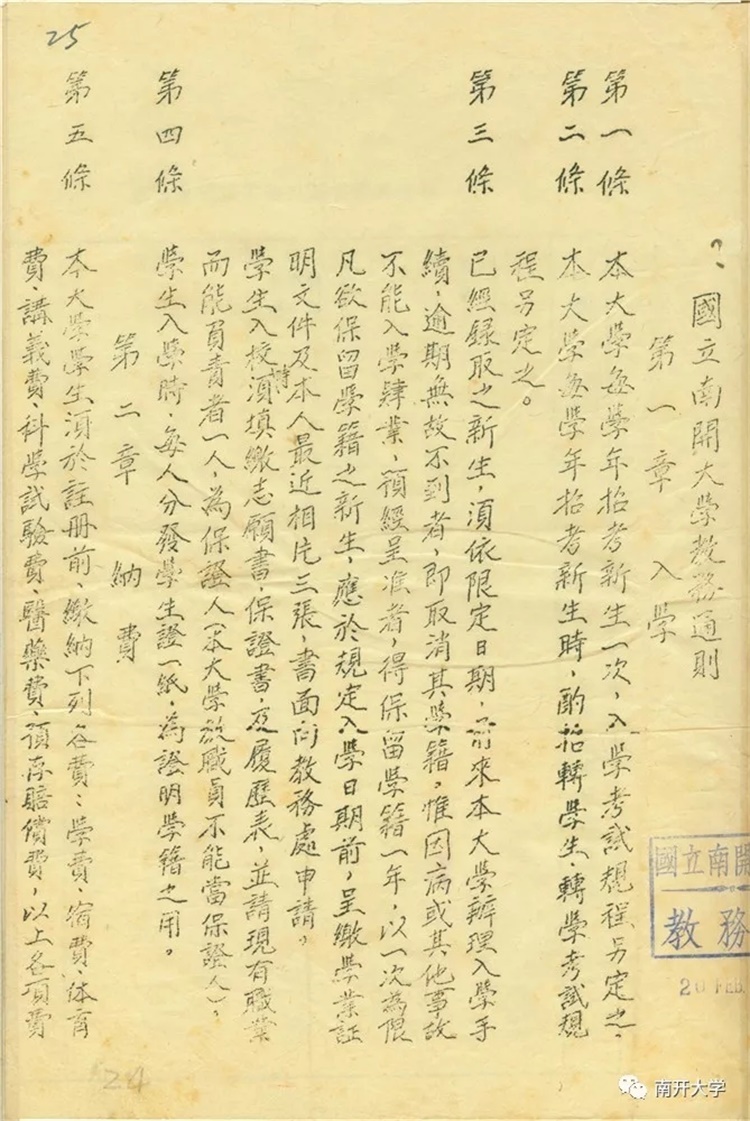 25
國立南開大學教務通則
第一章 入學
第一條 本大學每學年招考新生一次，入學考試規程另定之。
第二條 本大學每學年招考新生時，酌招轉學生，轉學考試規
程另定之。
第三條 已經錄取之新生，須依限定日期，前來本大學辦理入學手
續，逾期無故不到者，即取消其學籍。惟因病或其他事故
不能入學肄業，預經呈准者，得保留學籍一年，以一次為限
凡欲保留學籍之新生，應於規定入學日期前，呈繳學業証
明文件及本人最近相片三張，書面向教務處申請。
學生入校時須填繳志願書，保證書，及履歷表，並請現有職業
而能負責者一人，為保證人（本大學教職員不能當保證人）。
第四條 學生入學時，每人分發學生證一紙，為證明學籍之用。
第二章 納費
第五條 本大學學生須於註冊前，繳納下列各費：學費、宿費、体育
費、講義費、科學試驗費、醫藥費、預存賠償費，以上各項費
國立南開
教務
20 FEB.
24
南开大学